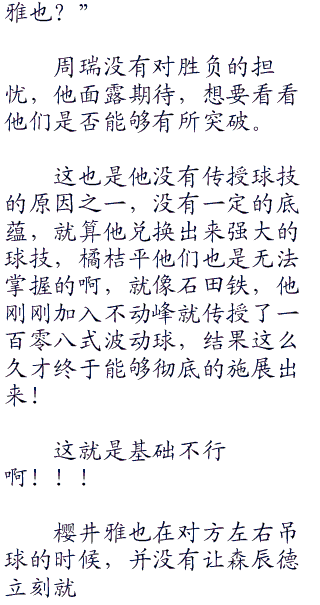 雅也？”
周瑞没有对胜负的担
忧，他面露期待，想要看看
他们是否能够有所突破。
这也是他没有传授球技
的原因之一，没有一定的底
蕴，就算他兑换出来强大的
球技，橘桔平他们也是无法
掌握的啊，就像石田铁，他
刚刚加入不动峰就传授了一
百零八式波动球，结果这么
久才终于能够彻底的施展出
来！
这就是基础不行
啊！！！
樱井雅也在对方左右吊
球的时候，并没有让森辰德
立刻就